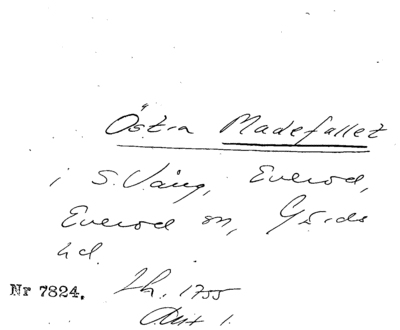 Östra Madefallet
i S. Vång, Everöd,
Everöd sn, Gärds
hd.
Nr 7824. Lh. 1755
Akt 1.